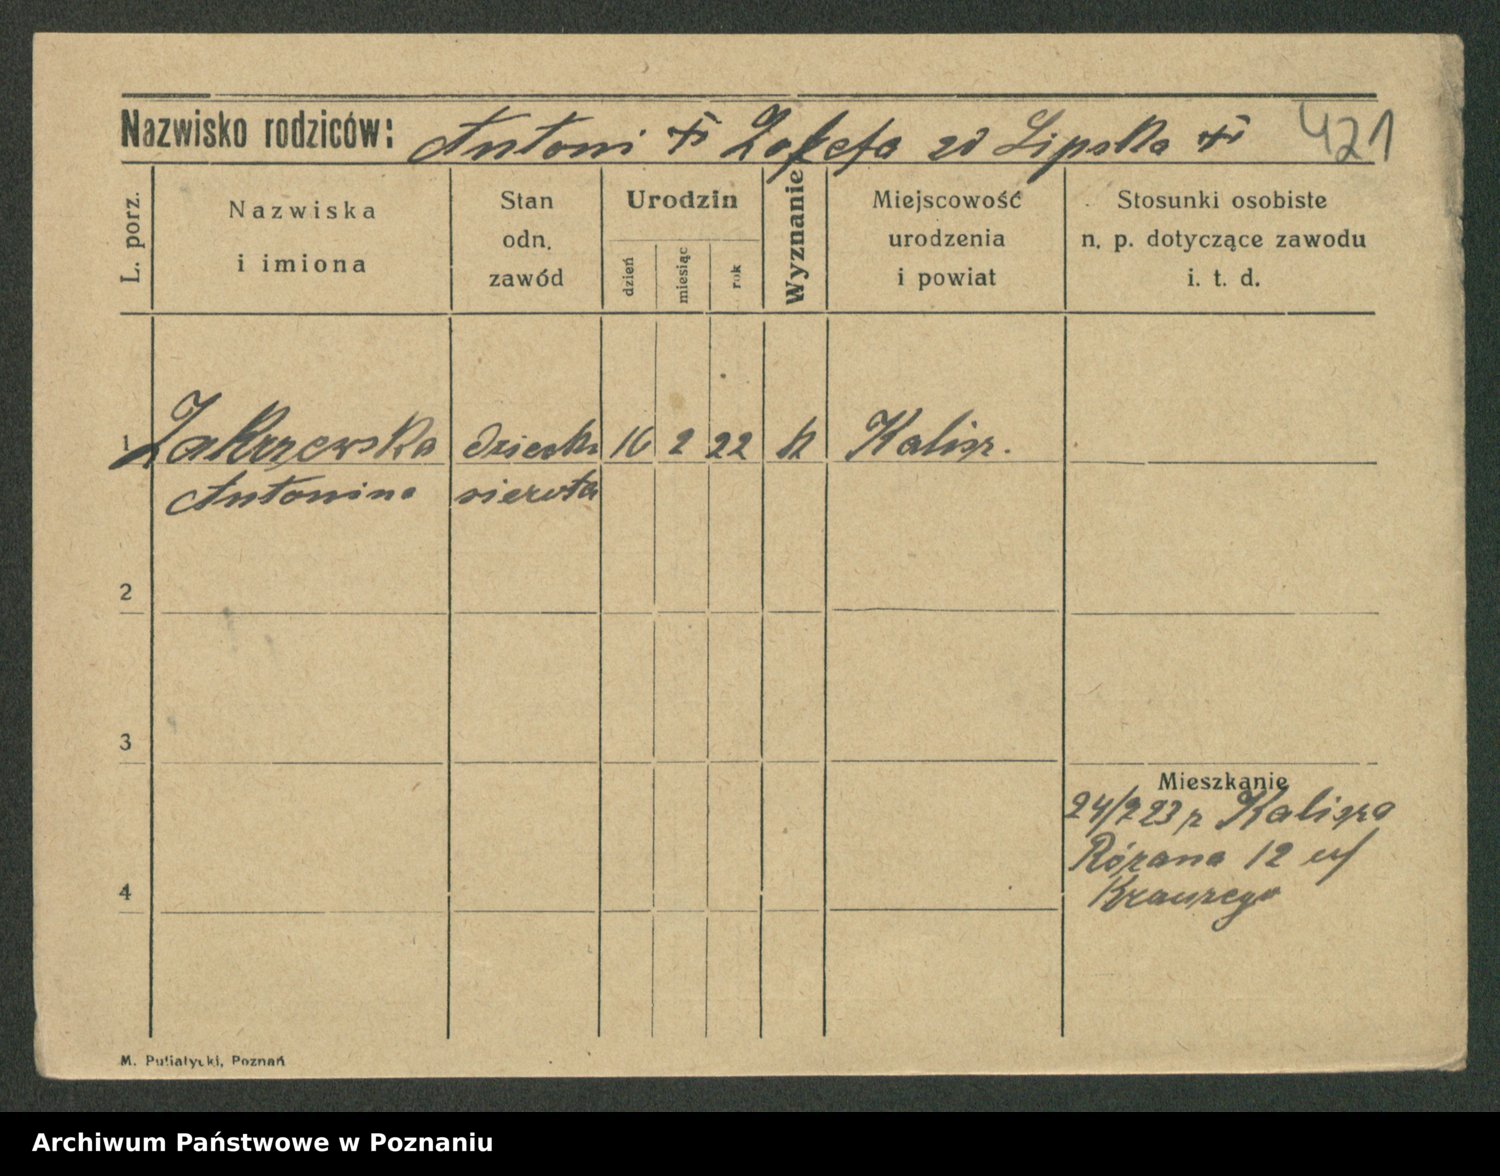 Nazwisko rodziców: Antoni zd Lipska 421
L. porz.
Nazwiska
i imiona
Stan
odn.
zawód
Urodzin
dzień
miesiąc
rok
Wyznanie
Miejscowość
urodzenia
i powiat
Stosunki osobiste
n. p. dotyczące zawodu
i. t. d.
1 Zakrzewska dziecko 16 2 22 k Kalisz.
Antonina sierota
2
3
Mieszkanie
24/2 23 z Kalisza
Różana 12
4
Krauzego
M. Putiatycki, Poznań
Archiwum Państwowe w Poznaniu